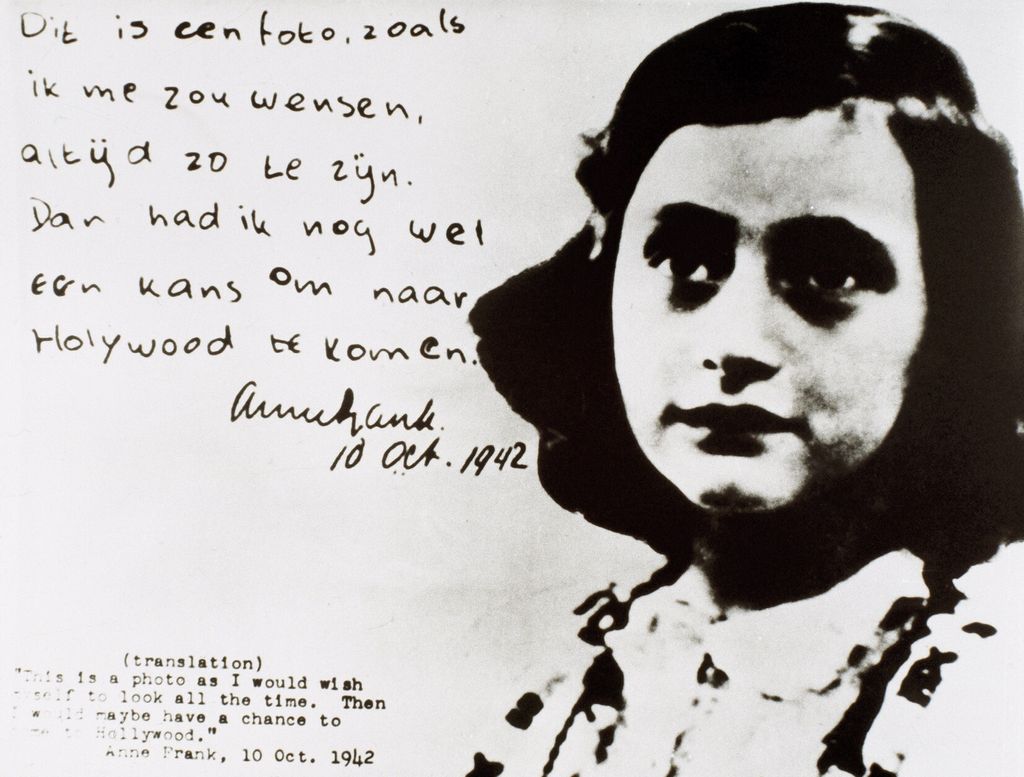 Dit is een foto, zoals
ik me zou wensen,
altijd zo te zijn.
Dan had ik nog wel
een kans om naar
Holywood te komen.
AnneFrank.
10 Oct. 1942
(translation)
"This is a photo as I would wish
myself to look all the time. Then
I would maybe have a chance to
come to Hollywood."
Anne Frank, 10 Oct. 1942